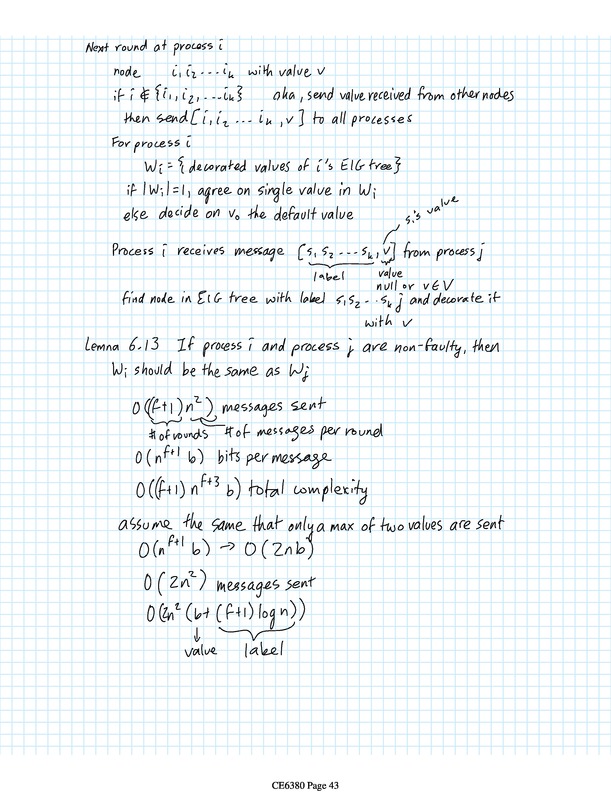 Next round at process i
node i₁ i₂ ... iₖ with value v
if i ∉ {i₁, i₂, ... iₖ} aka, send value received from other nodes
then send [i, i₂ ... iₖ, v] to all processes
For process i
Wᵢ = {decorated values of i's EIG tree}
if |Wᵢ|=1, agree on single value in Wᵢ
else decide on v₀ the default value
s₁'s value
Process i receives message [s₁ s₂ ... sₖ, v] from process j
label value
null or v ∈ V
find node in EIG tree with label s₁s₂ .. sₖ j and decorate it
with v
Lemna 6.13 If process i and process j are non-faulty, then
Wᵢ should be the same as Wⱼ
O((f+1)n²) messages sent
# of rounds # of messages per round
O(n^{f+1} b) bits per message
O((f+1) n^{f+3} b) total complexity
assume the same that only a max of two values are sent
O(n^{f+1} b) → O(2nb)
O(2n²) messages sent
O(2n² (b+(f+1) log n))
↓
value label
CE6380 Page 43